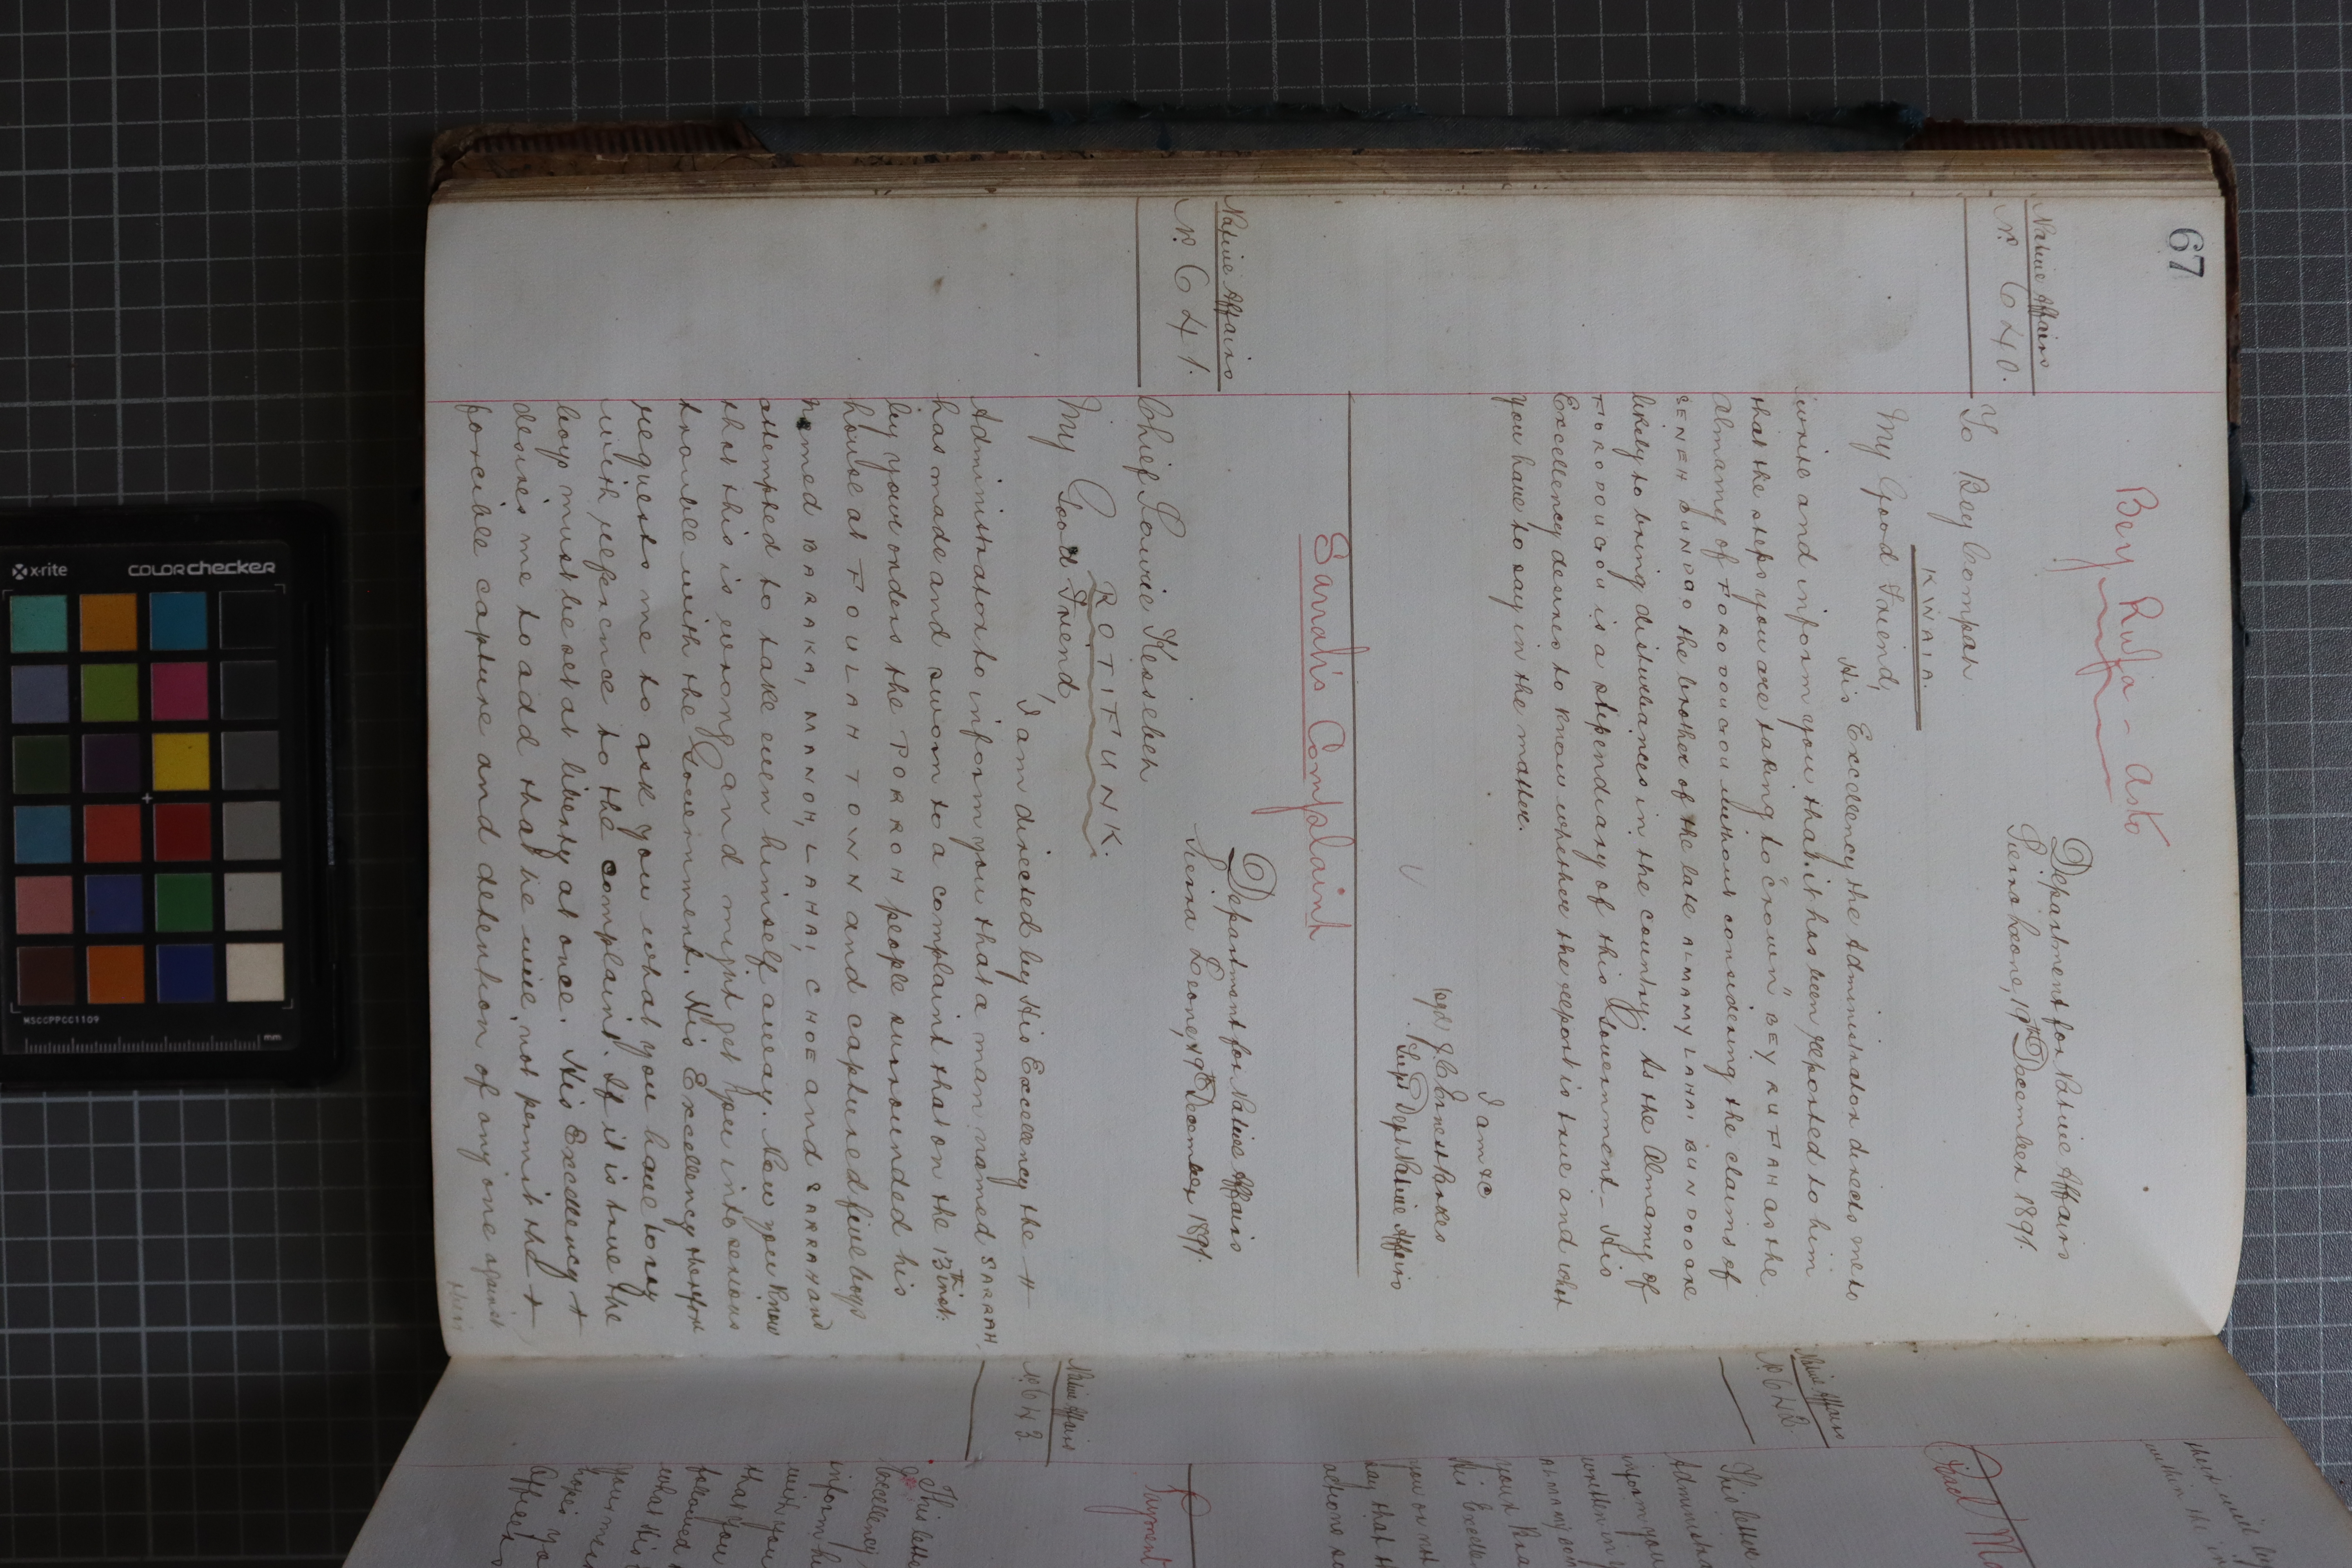 67
Bey Rufa - as to
Native Affairs
No. 640.
Department for Native Affairs
Sierra Leone, 19th December 1891.
To Bey Compah
KWAIA.
My Good Friend,
His Excellency the Administrator directs me to
write and inform you that it has been reported to him
that the steps you are taking to "crown" BEY RUFAH as the
Almamy of FORODUGOU without considering the claims of
SENEH BUNDOO the brother of the late ALMAMY LAHAI BUNDOO are
likely to bring disturbances in the country; As the Almamy of
FORODUGOU is a stipendiary of this Government - His
Excellency desires to know whether the report is true and what
you have to say in the matter.
I am &c
J. C. Ernest Parkes
Supt. Dept Native Affairs
Sarrah's Complaint
Native Affairs
No. 641.
Department for Native Affairs
Sierra Leone, 19th December 1891.
Chief Sourie Kessebeh
ROTIFUNK.
My Good Friend,
I am directed by His Excellency the
Administrator to inform you that a man named SARRAH,
has made and sworn to a complaint that on the 13th inst.
by your orders the PORROH people surrounded his
house at FOULAH TOWN and captured five boys
named BARAKA, MANOH, LAHAI, CHOE and SARRAH and
attempted to take even himself away. Now you know
that this is wrong and might get you into serious
trouble with the Government. His Excellency therefore
requests me to ask you what you have to say
with reference to the complaint. If it is true the
boys must be set at liberty at once. His Excellency
desires me to add that he will not permit the
forcible capture and detention of any one against
their
their will
within the
Native Affairs
No. 642.
This letter
Administra
inform you
written in y
ALMAMY
your
His Excellen
you on
say that
actions
Native Affairs
No. 643
This lette
Excellency
inform
with you
that you
followed
what His
your
hopes yo